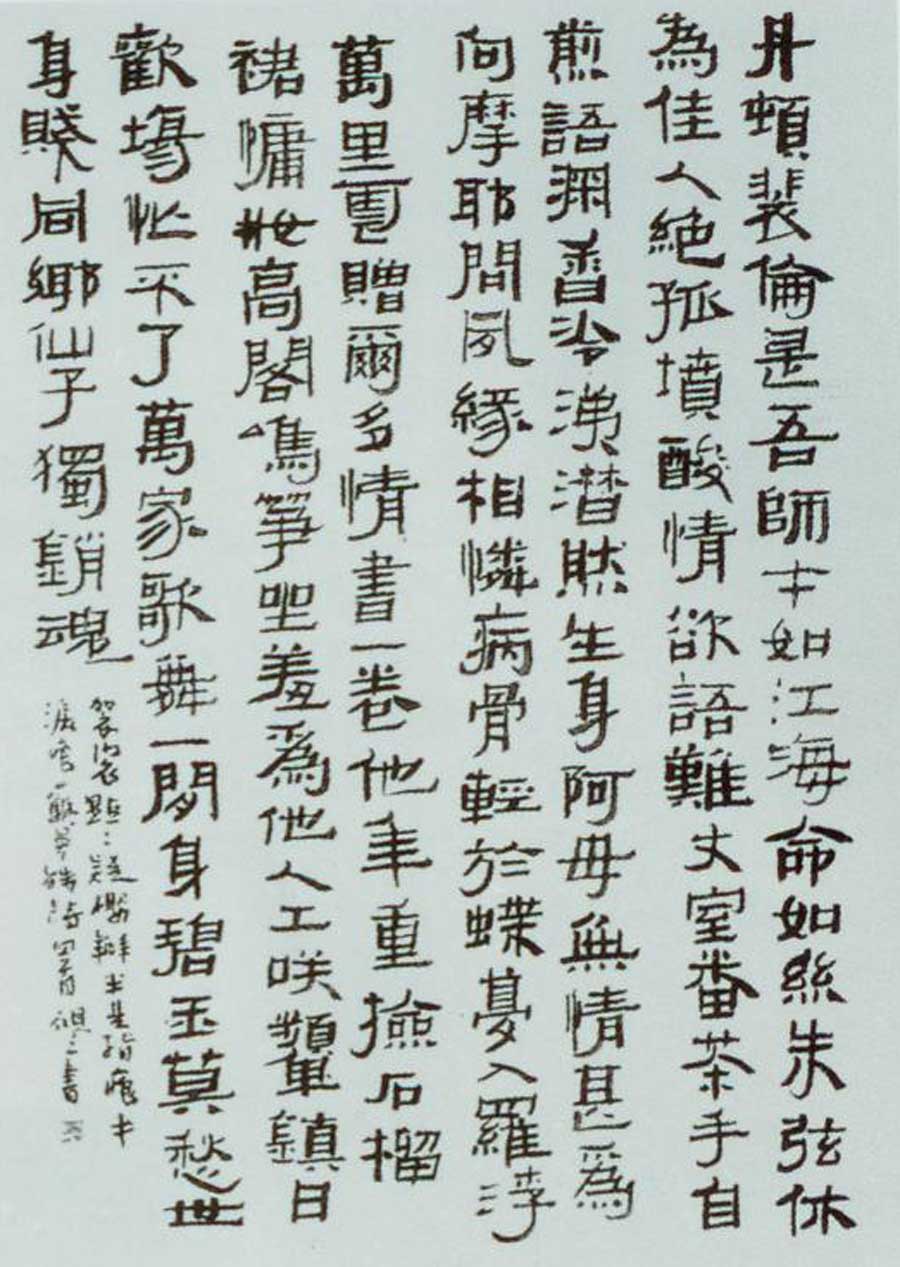 丹頓裴倫是吾師才如江海命如絲朱弦休
為佳人絕孤墳酸情欲語難丈室番茶手自
煎語深香冷涕潸然生身阿毋無情甚為
向摩耶問夙緣相憐病骨輕於蝶夢入羅浮
萬里雲贈爾多情書一卷他年重撿石榴
裙慵妝高閣鳴箏坐羞為他人工咲顰鎮日
歡場忙不了萬家歌舞一閒身碧玉莫愁世
身賤同鄉仙子獨銷魂
袈裟點點疑櫻瓣半是脂痕半
淚痕 蘇曼殊詩四首 書